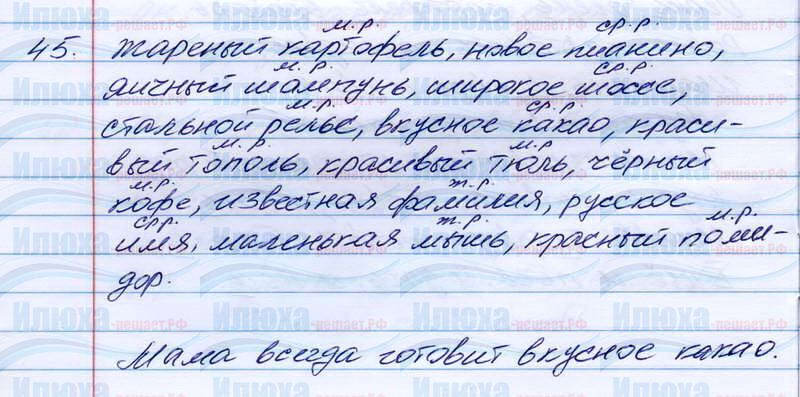 м.р. ср.р.
45. жареный картофель, новое пианино,
м.р. ср.р.
яичный шампунь, широкое шоссе,
м.р. ср.р.
стальной рельс, вкусное какао, краси-
м.р. м.р.
вый тополь, красивый тюль, чёрный
м.р. ж.р.
кофе, известная фамилия, русское
ср.р. ж.р. м.р.
имя, маленькая мышь, красный поми-
дор.
Мама всегда готовит вкусное какао.